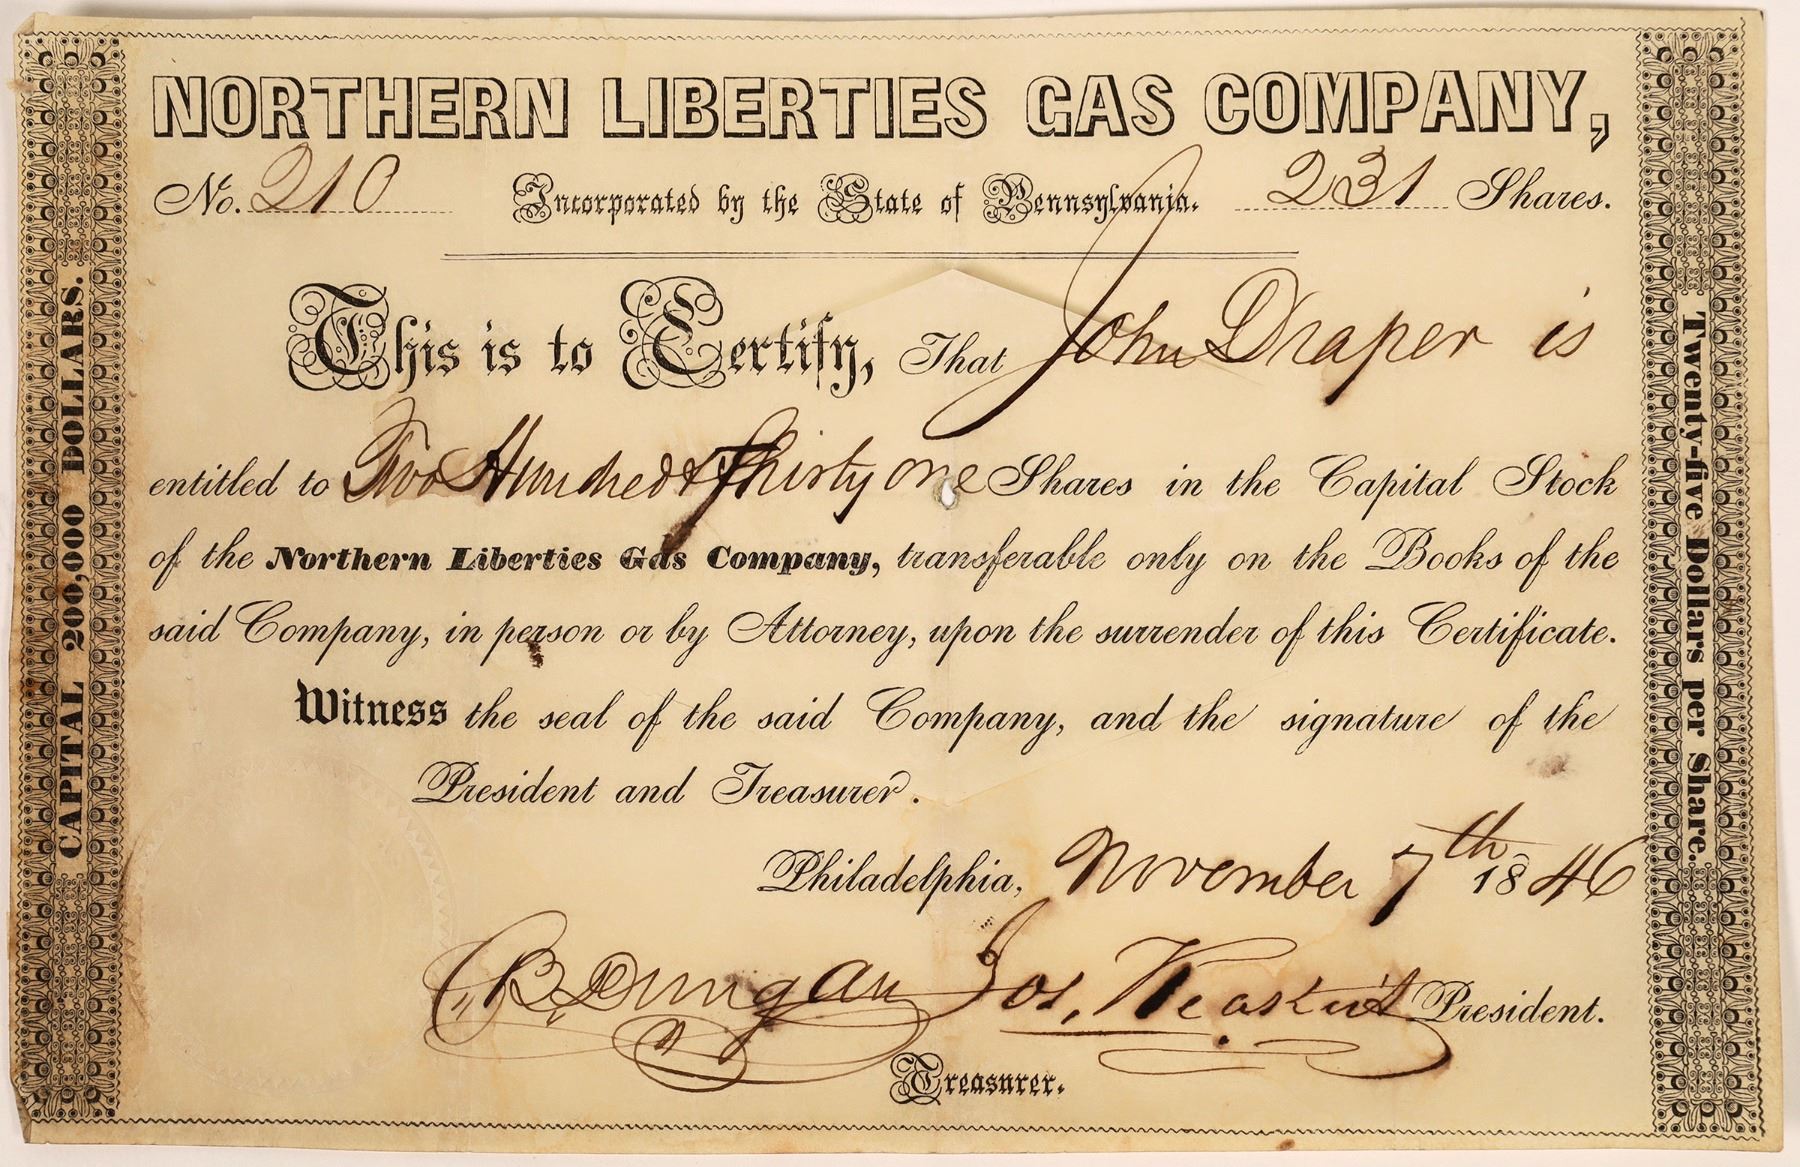 NORTHERN LIBERTIES GAS COMPANY,
No. 210 Incorporated by the State of Pennsylvania. 231 Shares.
This is to Certify, That John Draper is
entitled to Two Hundred & Thirty one Shares in the Capital Stock
of the Northern Liberties Gas Company, transferable only on the Books of the
said Company, in person or by Attorney, upon the surrender of this Certificate.
Witness the seal of the said Company, and the signature of the
President and Treasurer.
Philadelphia, November 7th 1846
C. B. Dungan Jos. President.
Treasurer.
CAPITAL 200,000 DOLLARS.
Twenty-five Dollars per Share.